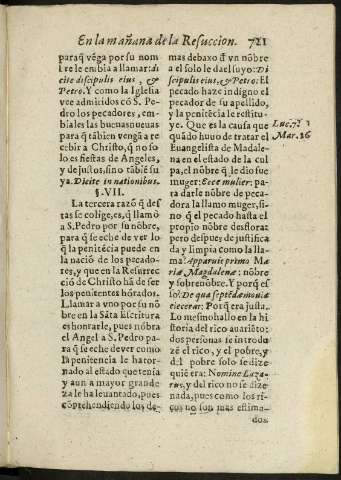 En la mañana de la Resurreccion. 721
paraq̃ vẽga por su nom
re le embia a llamar: di
cite discipulis eius, &
Petro. Y como la Iglesia
vee admitidos cõ S. Pe-
dro los pecadores, em-
bia les las buenas nueuas
para q̃ tãbien vengã a re-
cebir a Christo, q̃ no so-
lo es fiestas de Angeles,
y de justos, sino tãbiẽ su-
ya. Dicite in nationibus.
§. VII.
La tercera razõ q̃ des-
tas se colige, es, q̃ llamò
a S. Pedro por su nõbre,
para q̃ se eche de ver lo
q̃ la penitẽcia puede en
la naciõ de los pecado-
res, y que en la Resurrec
ciõ de Christo hã de ser
los penitentes hõrados.
Llamar a vno por su nõ
bre en la Sãta Escritura
es honrarle, pues nõbra
el Angel a S. Pedro pa-
ra q̃ se eche dever como
la penitencia le ha tor-
nado al estado que tenia
y aun a mayor grande
za le ha leuantado, pues
cõprehendiendo los de-
mas debaxo d̃ vn nõbre
a el solo le da el suyo: Di
scipulis eius, & Petro. El
pecado haze indigno el
pecador de su apellido,
y la penitẽcia le restitu-
ye. Que es la causa que
quãdo huuo de tratar el
Euangelista de Madale-
na en el estado de la cul
pa, el nõbre q̃ le dio fue
muger: Ecce mulier: pa-
darle nõbre de peca-
dora la llamo muger, si-
no q̃ el pecado hasta el
propio nõbre desflora:
pero despues de justifica
da y limpia como la lla-
ma? Apparuit primo Ma
riæ Magdalenæ: nõbre
y sobrenõbre. Y porq̃ es
so? De qua septẽ dæmonia
eiecerat. Porq̃ era justa.
Lo mesmo hallo en la hi
storia del rico auariẽto:
dos personas se introdu
zẽ el rico, y el pobre, y
d̃l pobre solo se dize
quiẽ era: Nomine Laza-
rus, y del rico no se dize
nada, pues como los ri-
cos no son mas estima-
dos.
Luc. 7.
Mar. 16